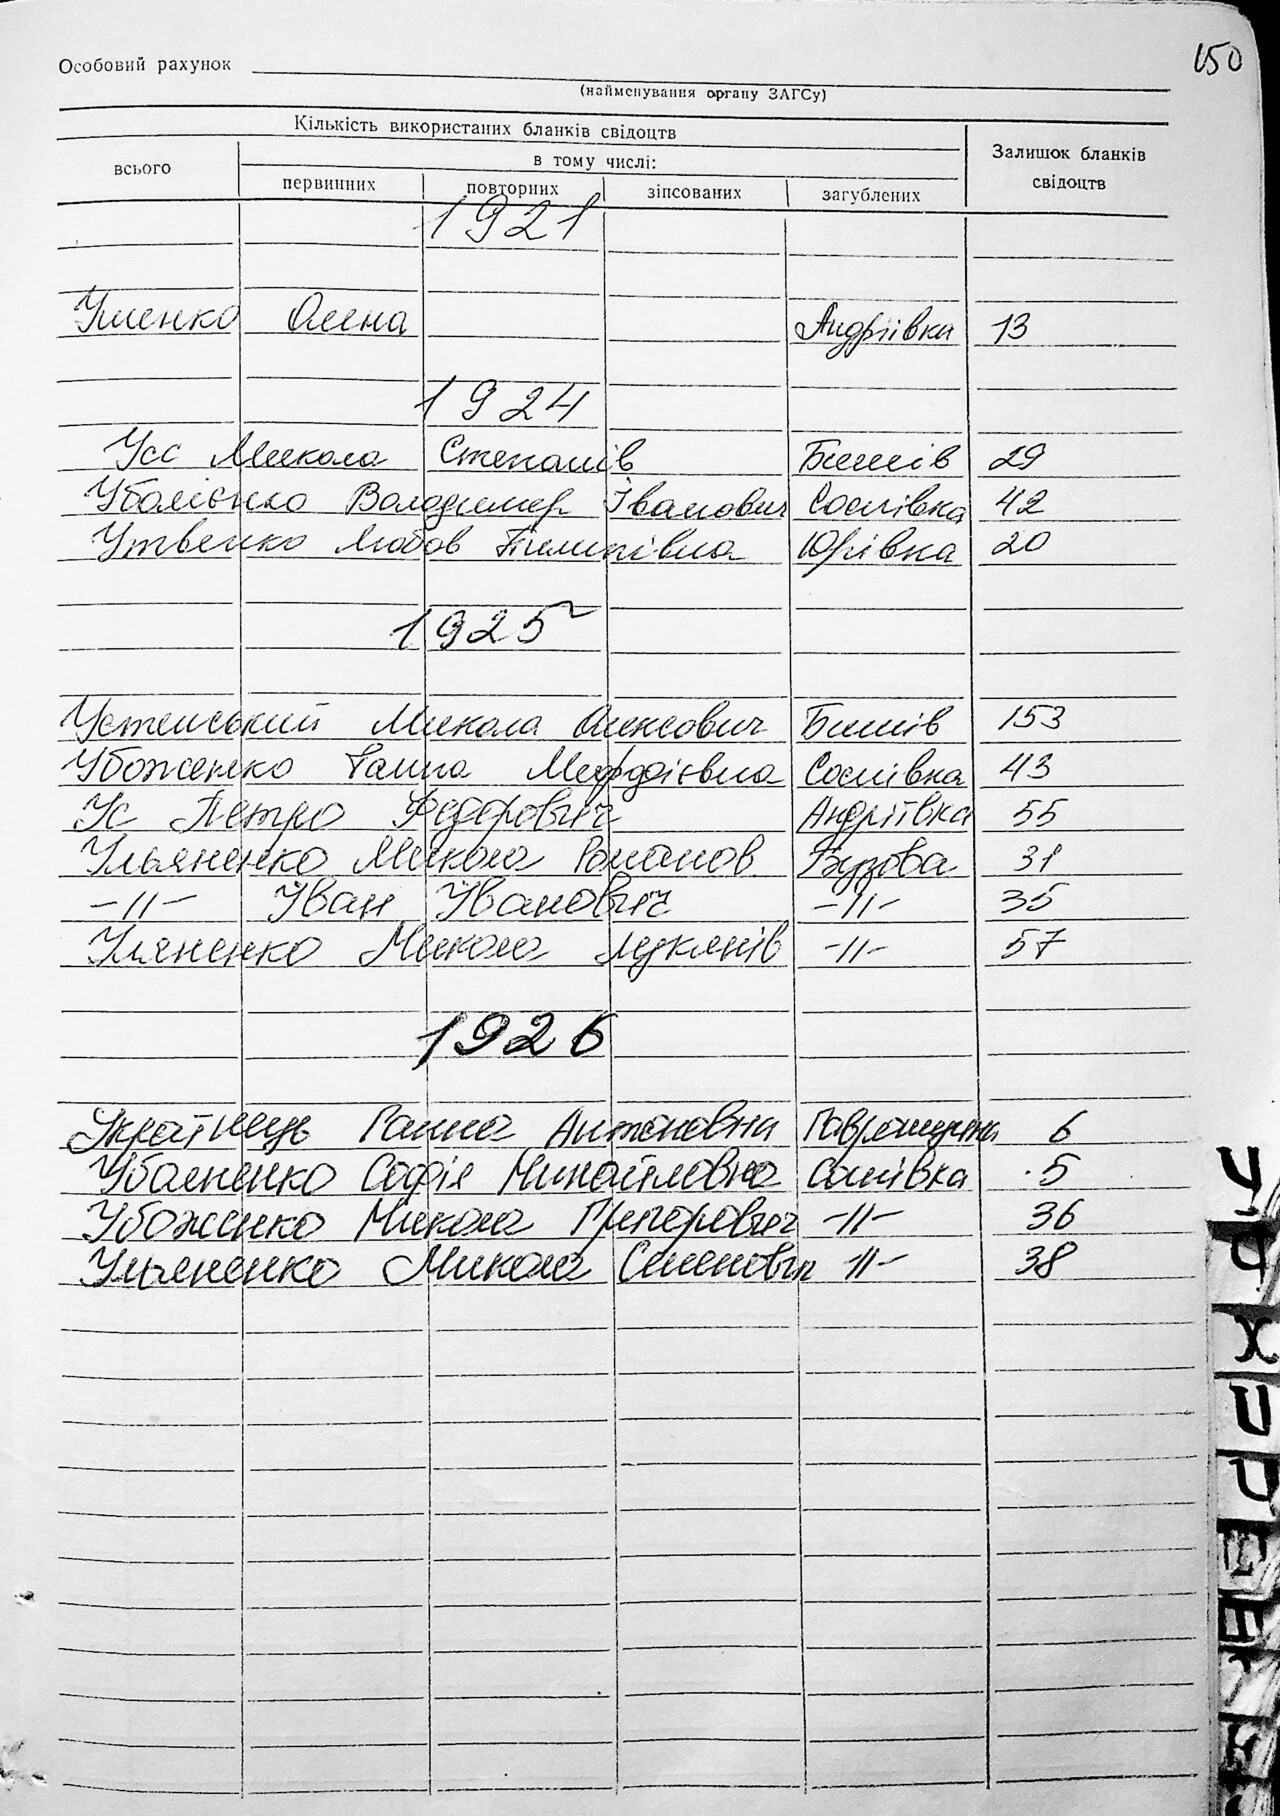 150
Особовий рахунок
(найменування органу ЗАГСу)
Кількість використаних бланків свідоцтв
Залишок бланків свідоцтв
всього
в тому числі:
первинних повторних зіпсованих загублених
1921
Уменко Олена Андріївка 13
1924
Усс Микола Степанів Бишів 29
Володимер Іванович Соснівка 42
Утвенко Любов Пилипівна Юрівка 20
1925
Устенський Микола Олексович Бишів 153
Убоженко Ганна Мефодієвна Соснівка 43
Ус Петро Федорович Андріївка 55
Ульяненко Микола Романов Бузова 31
-//- Іван Іванович -//- 35
Уляненко Микола Лукянів -//- 57
1926
Українець Ганна Антоновна 6
Софія Михайловна 5
Убоженко Микола Григорович -//- 36
Ульяненко Микола Семенович -//- 38
У
Ф
Х
Ц